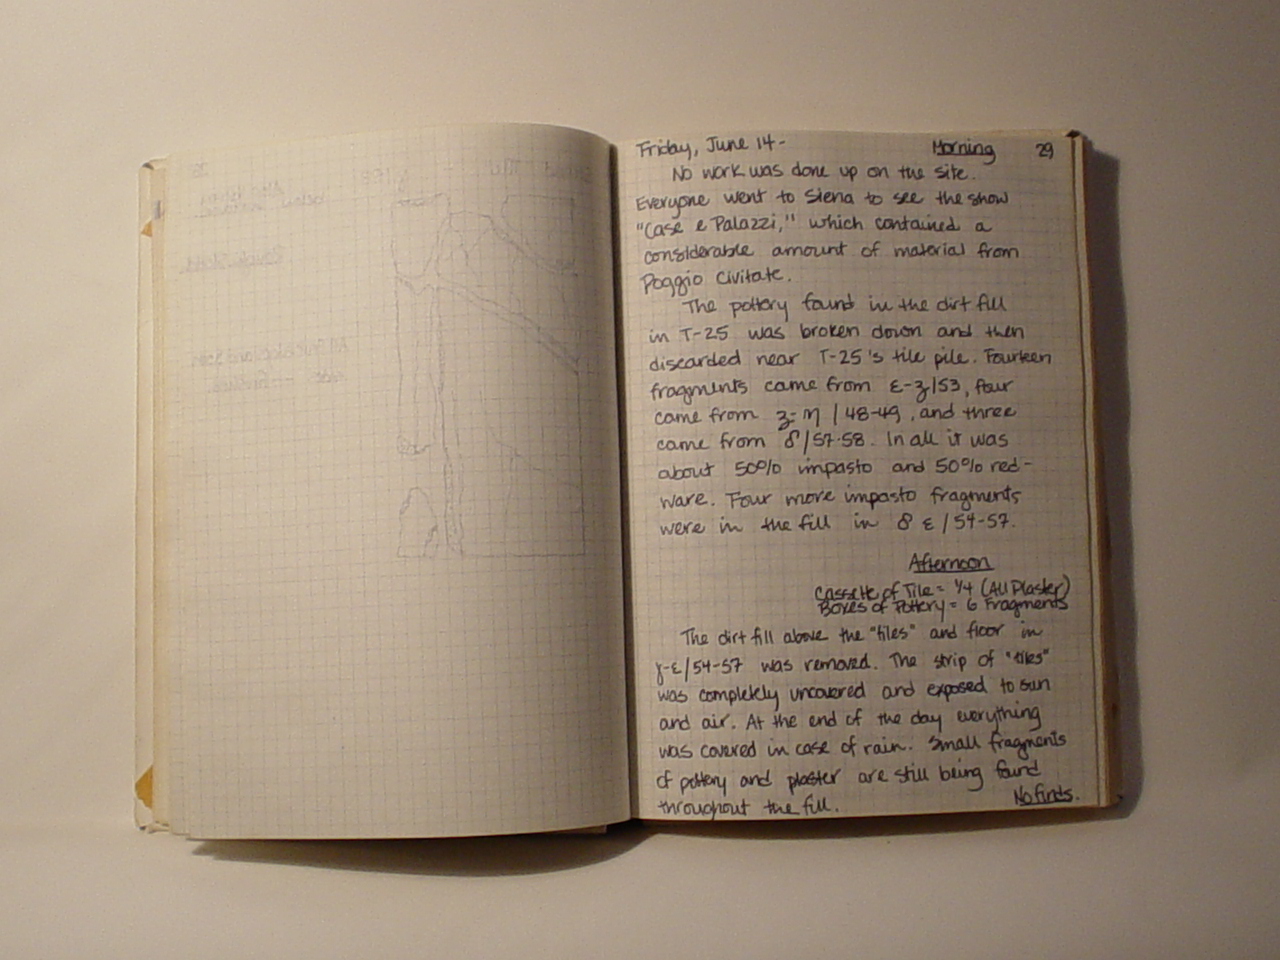 Friday, June 14-
Morning
29
No work was done up on the site.
Everyone went to Siena to see the show
"Case e Palazzi," which contained a
considerable amount of material from
Poggio Civitate.
The pottery found in the dirt fill
in T-25 was broken down and then
discarded near T-25's tile pile. Fourteen
fragments came from ε-z/53, four
came from z-η/48-49, and three
came from δ/57-58. In all it was
about 50% impasto and 50% red-
ware. Four more impasto fragments
were in the fill in δ ε/54-57.
Afternoon
Cassette of Tile = 1/4 (All Plaster)
Boxes of Pottery = 6 Fragments
The dirt fill above the "tiles" and floor in
γ-ε/54-57 was removed. The strip of "tiles"
was completely uncovered and exposed to sun
and air. At the end of the day everything
was covered in case of rain. Small fragments
of pottery and plaster are still being found
throughout the fill.
No finds.